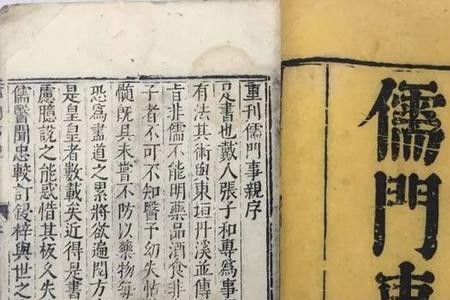 儒門事
重刊儒門事親序
是書也戴人張子和專為事
有法其術與東垣丹溪並傳
旨非儒不能明藥品酒食非
子者不可不知醫予幼失怙
慎既具未嘗不防以藥物每
恐為盡道之累將欲遍閱方
是皇皇者數載矣近得是書
慮臆說之能惑惜其板久失
儒醫聞忠較訂鋟梓與世之